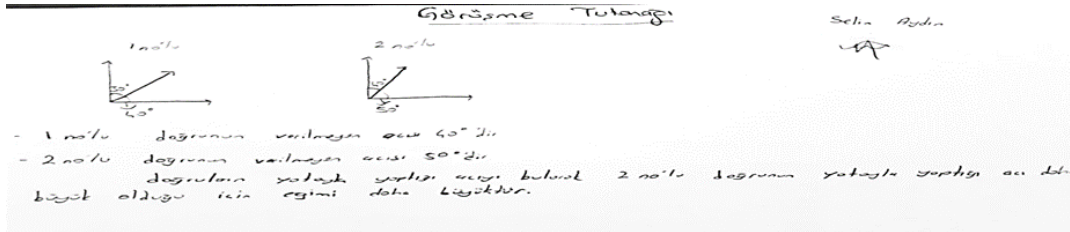 Görüşme Tutanağı
Selin Aydın
1 no'lu
2 no'lu
50°
40°
50°
- 1 no'lu doğrunun verilmeyen açısı 40°'dir
- 2 no'lu doğrunun verilmeyen açısı 50°'dir
doğruların yatayla yaptığı açıyı bularak 2 no'lu doğrunun yatayla yaptığı açı daha
büyük olduğu için eğimi daha büyüktür.